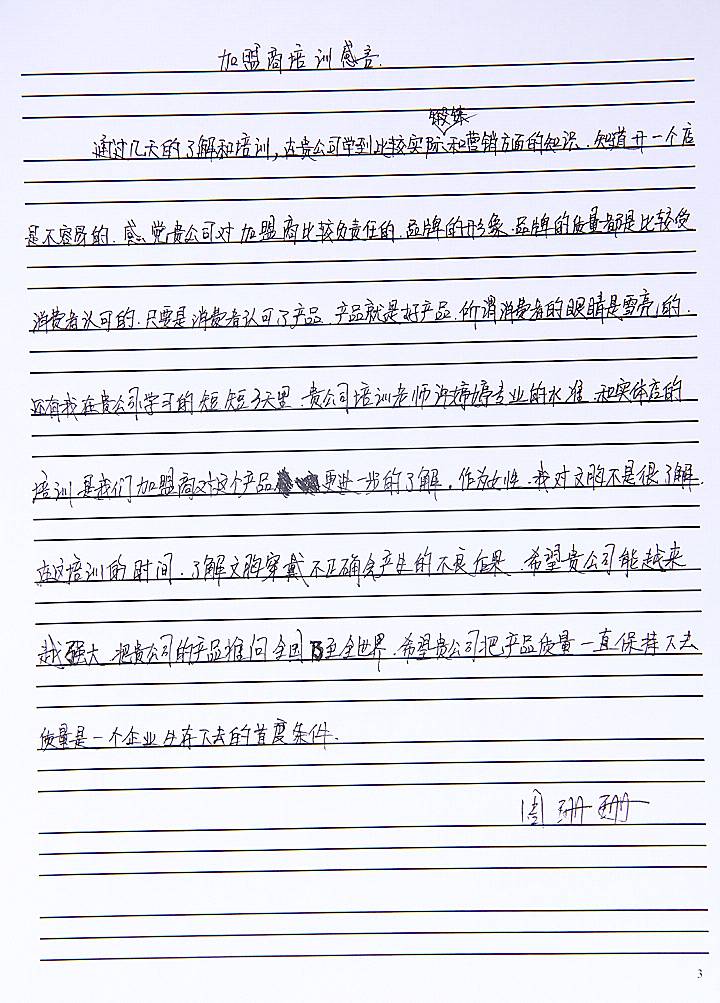 加盟商培训感言.
锻炼
通过几天的了解和培训,在贵公司学到比较实际和营销方面的知识.知道开一个店
是不容易的.感觉贵公司对加盟商比较负责任的.品牌的形象.品牌的质量都是比较受
消费者认可的.只要是消费者认可了产品.产品就是好产品.所谓消费者的眼睛是雪亮的.
还有我在贵公司学习的短短3天里.贵公司培训老师许婷婷专业的水准.和实体店的
培训是我们加盟商对这个产品更进一步的了解.作为女性.我对文胸不是很了解.
在这培训的时间.了解文胸穿戴不正确会产生的不良后果.希望贵公司能越来
越强大.把贵公司的产品推向全国乃至全世界.希望贵公司把产品质量一直保持下去
质量是一个企业生存下去的首度条件.
周珊珊
3